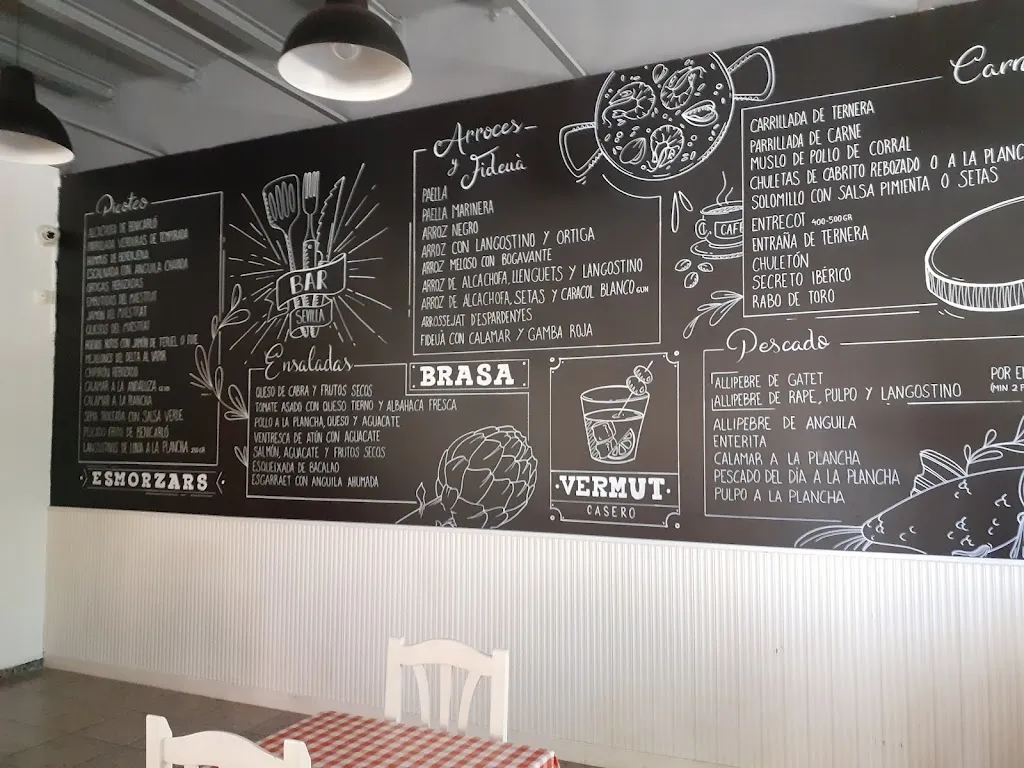 Picoteo
ALCACHOFA DE BENICARLÓ
PARRILLADA VERDURAS DE TEMPORADA
HUMMUS DE BERENJENA
ESCALIVADA CON ANGUILA
ORTIGAS REBOZADAS
EMBUTIDOS DEL MAESTRAT
JAMÓN DEL MAESTRAT
QUESOS DEL MAESTRAT
HUEVOS ROTOS CON JAMÓN DE TERUEL O FOIE
MEJILLONES DEL DELTA AL VAPOR
CHIPIRÓN REBOZADO
CALAMAR A LA ANDALUZA
CALAMAR A LA PLANCHA
SEPIA TROCEADA CON SALSA VERDE
PESCADO FRITO DE BENICARLÓ
LANGOSTINOS DE LONJA A LA PLANCHA 250 GR
ESMORZARS
BAR
SEVILLA
Ensaladas
QUESO DE CABRA Y FRUTOS SECOS
TOMATE ASADO CON QUESO TIERNO Y ALBAHACA FRESCA
POLLO A LA PLANCHA, QUESO Y AGUACATE
VENTRESCA DE ATÚN CON AGUACATE
SALMÓN, AGUACATE Y FRUTOS SECOS
ESQUEIXADA DE BACALAO
ESGARRAET CON ANGUILA AHUMADA
BRASA
Arroces
y Fideuà
PAELLA
PAELLA MARINERA
ARROZ NEGRO
ARROZ CON LANGOSTINO Y ORTIGA
ARROZ MELOSO CON BOGAVANTE
ARROZ DE ALCACHOFA, LLENGUETS Y LANGOSTINO
ARROZ DE ALCACHOFA, SETAS Y CARACOL BLANCO
ARROSSEJAT D'ESPARDENYES
FIDEUÀ CON CALAMAR Y GAMBA ROJA
VERMUT
CASERO
CAFÉ
Carn
CARRILLADA DE TERNERA
PARRILLADA DE CARNE
MUSLO DE POLLO DE CORRAL
CHULETAS DE CABRITO REBOZADO O A LA PLANC
SOLOMILLO CON SALSA PIMIENTA O SETAS
ENTRECOT 400-500 GR
ENTRAÑA DE TERNERA
CHULETÓN
SECRETO IBÉRICO
RABO DE TORO
Pescado
ALLIPEBRE DE GATET
ALLIPEBRE DE RAPE, PULPO Y LANGOSTINO
POR E
(MIN 2 P
ALLIPEBRE DE ANGUILA
ENTERITA
CALAMAR A LA PLANCHA
PESCADO DEL DÍA A LA PLANCHA
PULPO A LA PLANCHA